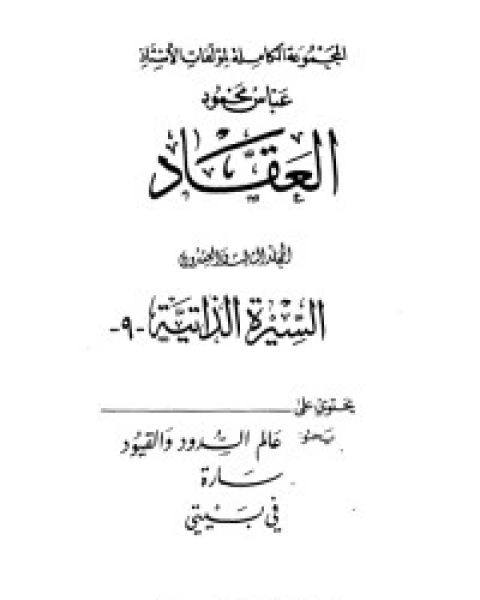 المجموعة الكاملة لمؤلفات الأستاذ
عباس محمود
العقاد
المجلد الثالث والعشرون
السيرة الذاتية -٩-
يحتوي على
عالم السدود والقيود
سارة
في بيتي